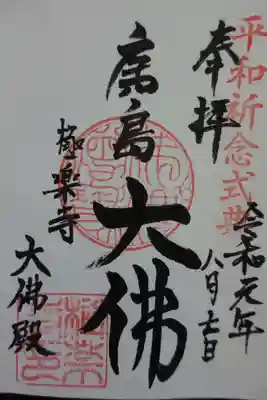 平和祈念式典
奉拝
令和元年
八月十日
廣島大佛
極楽寺
大佛殿